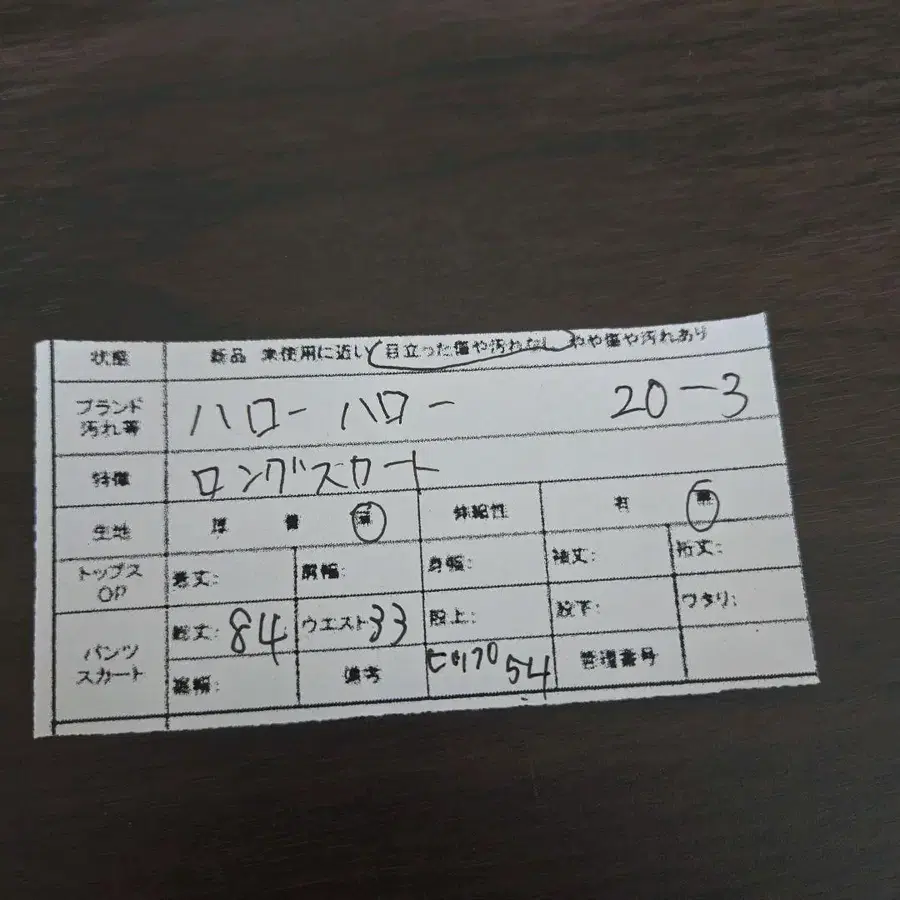 状態 新品 未使用に近い 目立った傷や汚れなし やや傷や汚れあり
ブランド 汚れ等 ハロー ハロー 20-3
特徴 ロングスカート
生地 厚 普 薄 伸縮性 有 無
トップス OP 着丈: 肩幅: 身幅: 袖丈: 裄丈:
パンツ スカート 総丈: 84 ウエスト 33 股上: 股下: ワタリ:
裾幅: 備考 ヒップ 54 管理番号